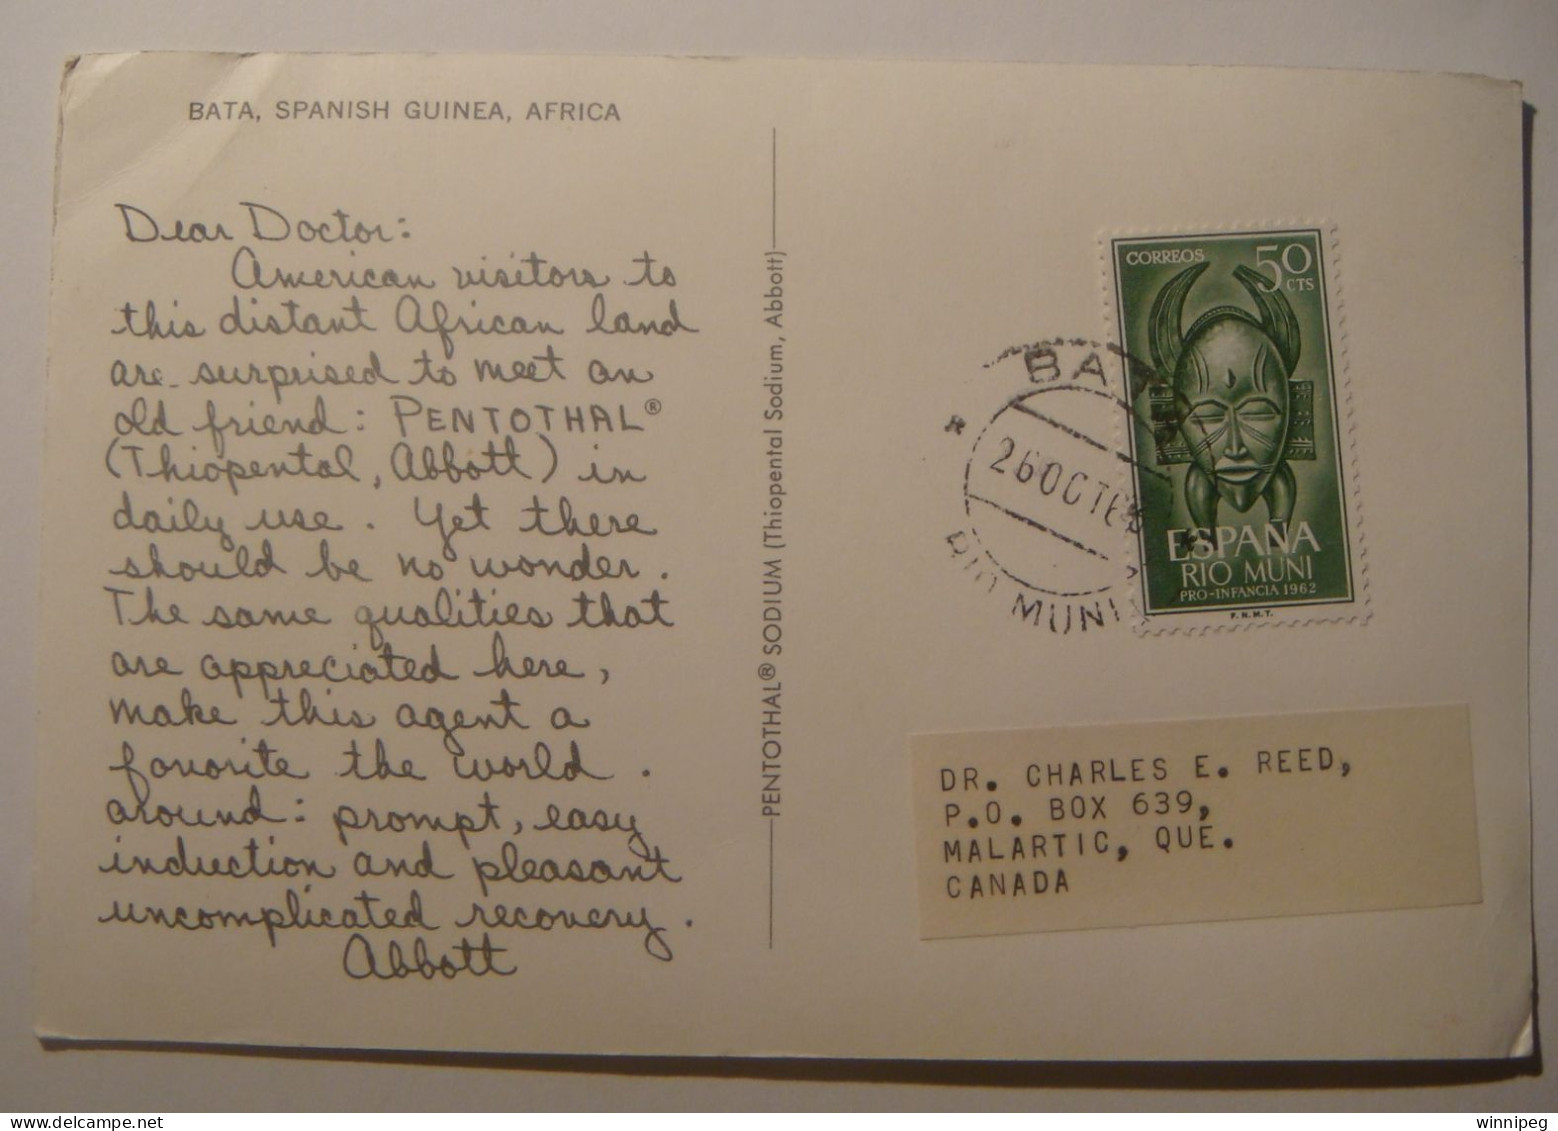 BATA, SPANISH GUINEA, AFRICA
Dear Doctor:
American visitors to
this distant African land
are surprised to meet an
old friend: PENTOTHAL®
(Thiopental, Abbott) in
daily use. Yet there
should be no wonder.
The same qualities that
are appreciated here,
make this agent a
favorite the world
around: prompt, easy
induction and pleasant
uncomplicated recovery.
Abbott
PENTOTHAL® SODIUM (Thiopental Sodium, Abbott)
CORREOS
50
CTS
ESPAÑA
RIO MUNI
PRO-INFANCIA 1962
F.N.M.T.
BATA
26 OCT 6
RIO MUNI
DR. CHARLES E. REED,
P.O. BOX 639,
MALARTIC, QUE.
CANADA
winnipeg